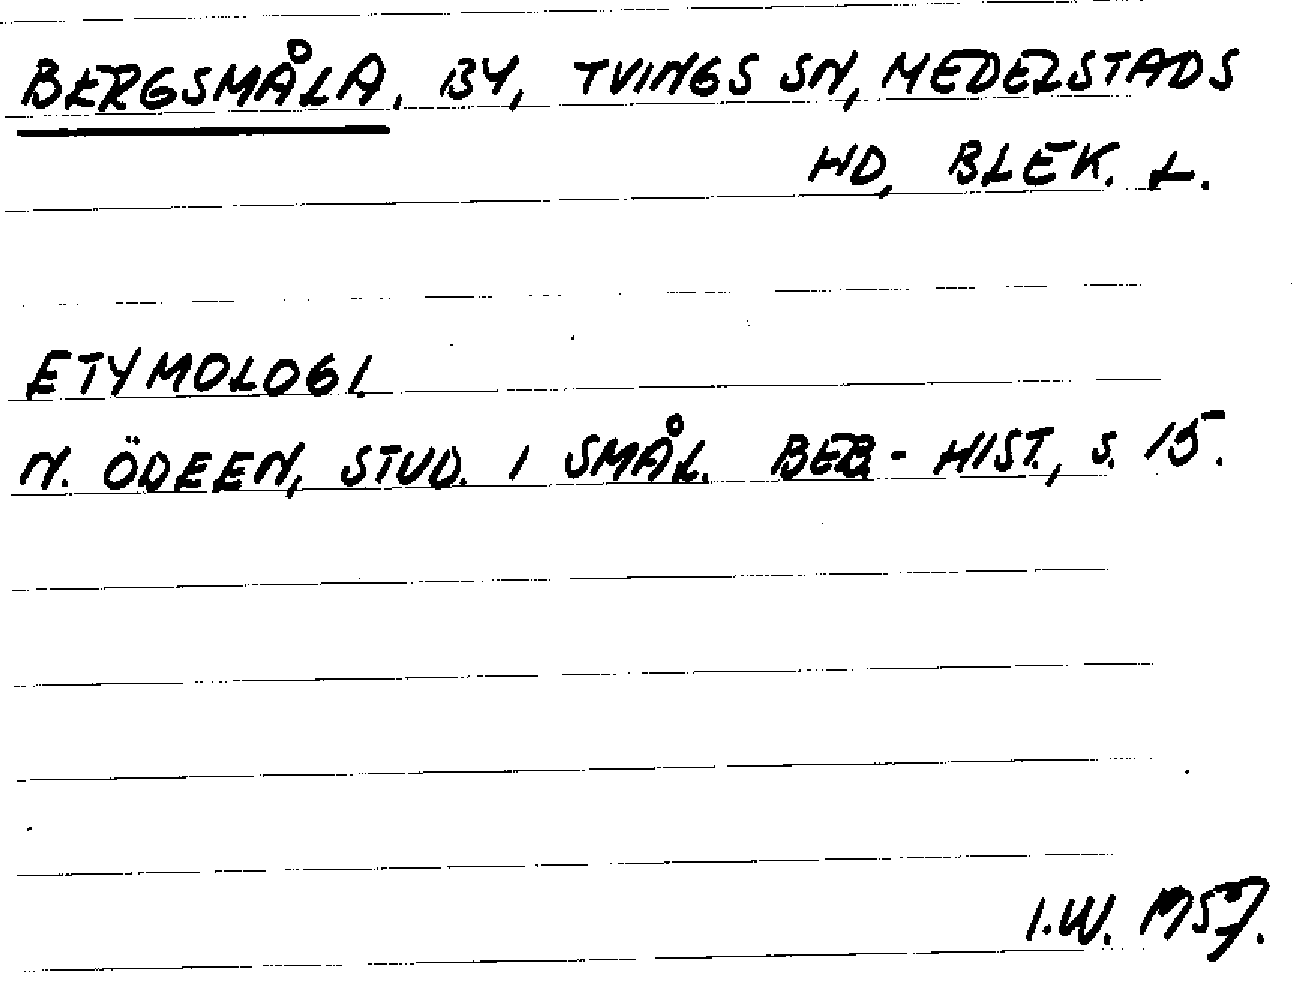 BERGSMÅLA, BY, TVINGS SN, MEDELSTADS
HD, BLEK. L.
ETYMOLOGI.
N. ÖDEEN, STUD. I SMÅL. BEB.-HIST., S. 15.
I.W. 1957.